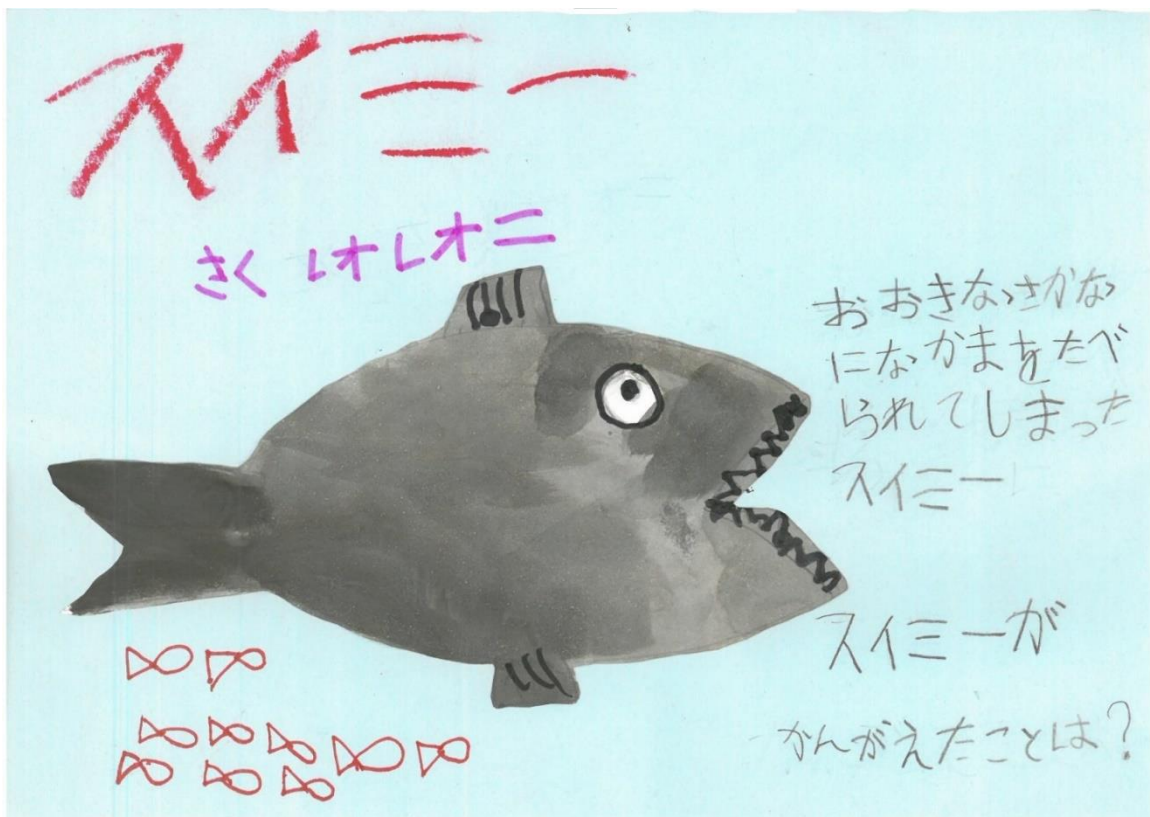 スイミー
さく レオレオニ
おおきなさかな
になかまをたべ
られてしまった
スイミー
スイミーが
かんがえたことは?